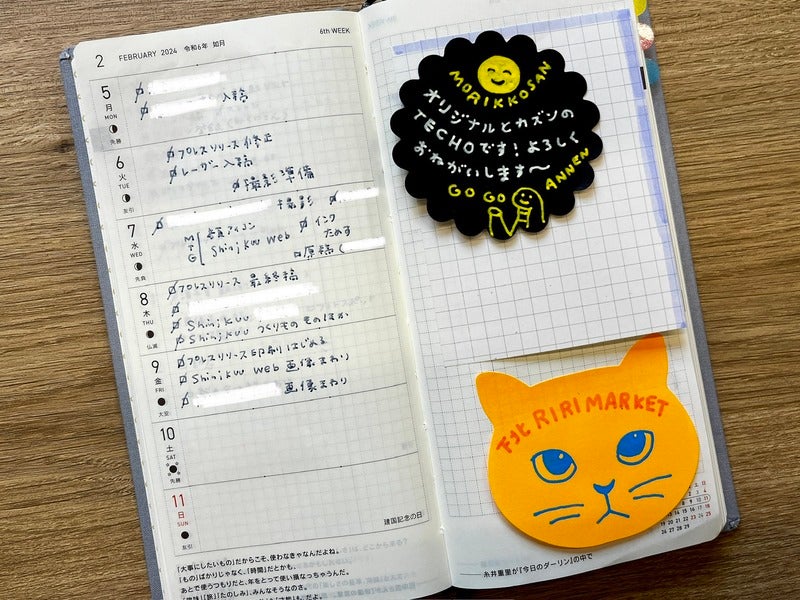 2 FEBRUARY 2024 令和6年 如月
6th WEEK
5
月
MON
先勝
入稿
6
火
TUE
友引
プレスリリース修正
レーザー入稿
撮影準備
7
水
WED
先負
撮影
MTG
Shinjkuu Web
インク
ためす
原稿
8
木
THU
仏滅
プレスリリース 最終稿
Shinjkuu
Shinjkuu つくりもの ものほか
9
金
FRI
大安
プレスリリース印刷はじめる
Shinjkuu Web 画像まわり
画像まわり
10
土
SAT
先勝
11
日
SUN
友引
建国記念の日
「大事にしたいもの」だからこそ、使わなきゃなんだよね。
「もの」ばかりじゃなく、「時間」だとかも。
あとで使うつもりだと、年をとって使い損なっちゃうんだ。
MORIKKOSAN
オリジナルとカズンの
TECHOです!よろしく
おねがいします〜
GO GO ANNEN
下北 RIRI MARKET
糸井重里が『今日のダーリン』の中で